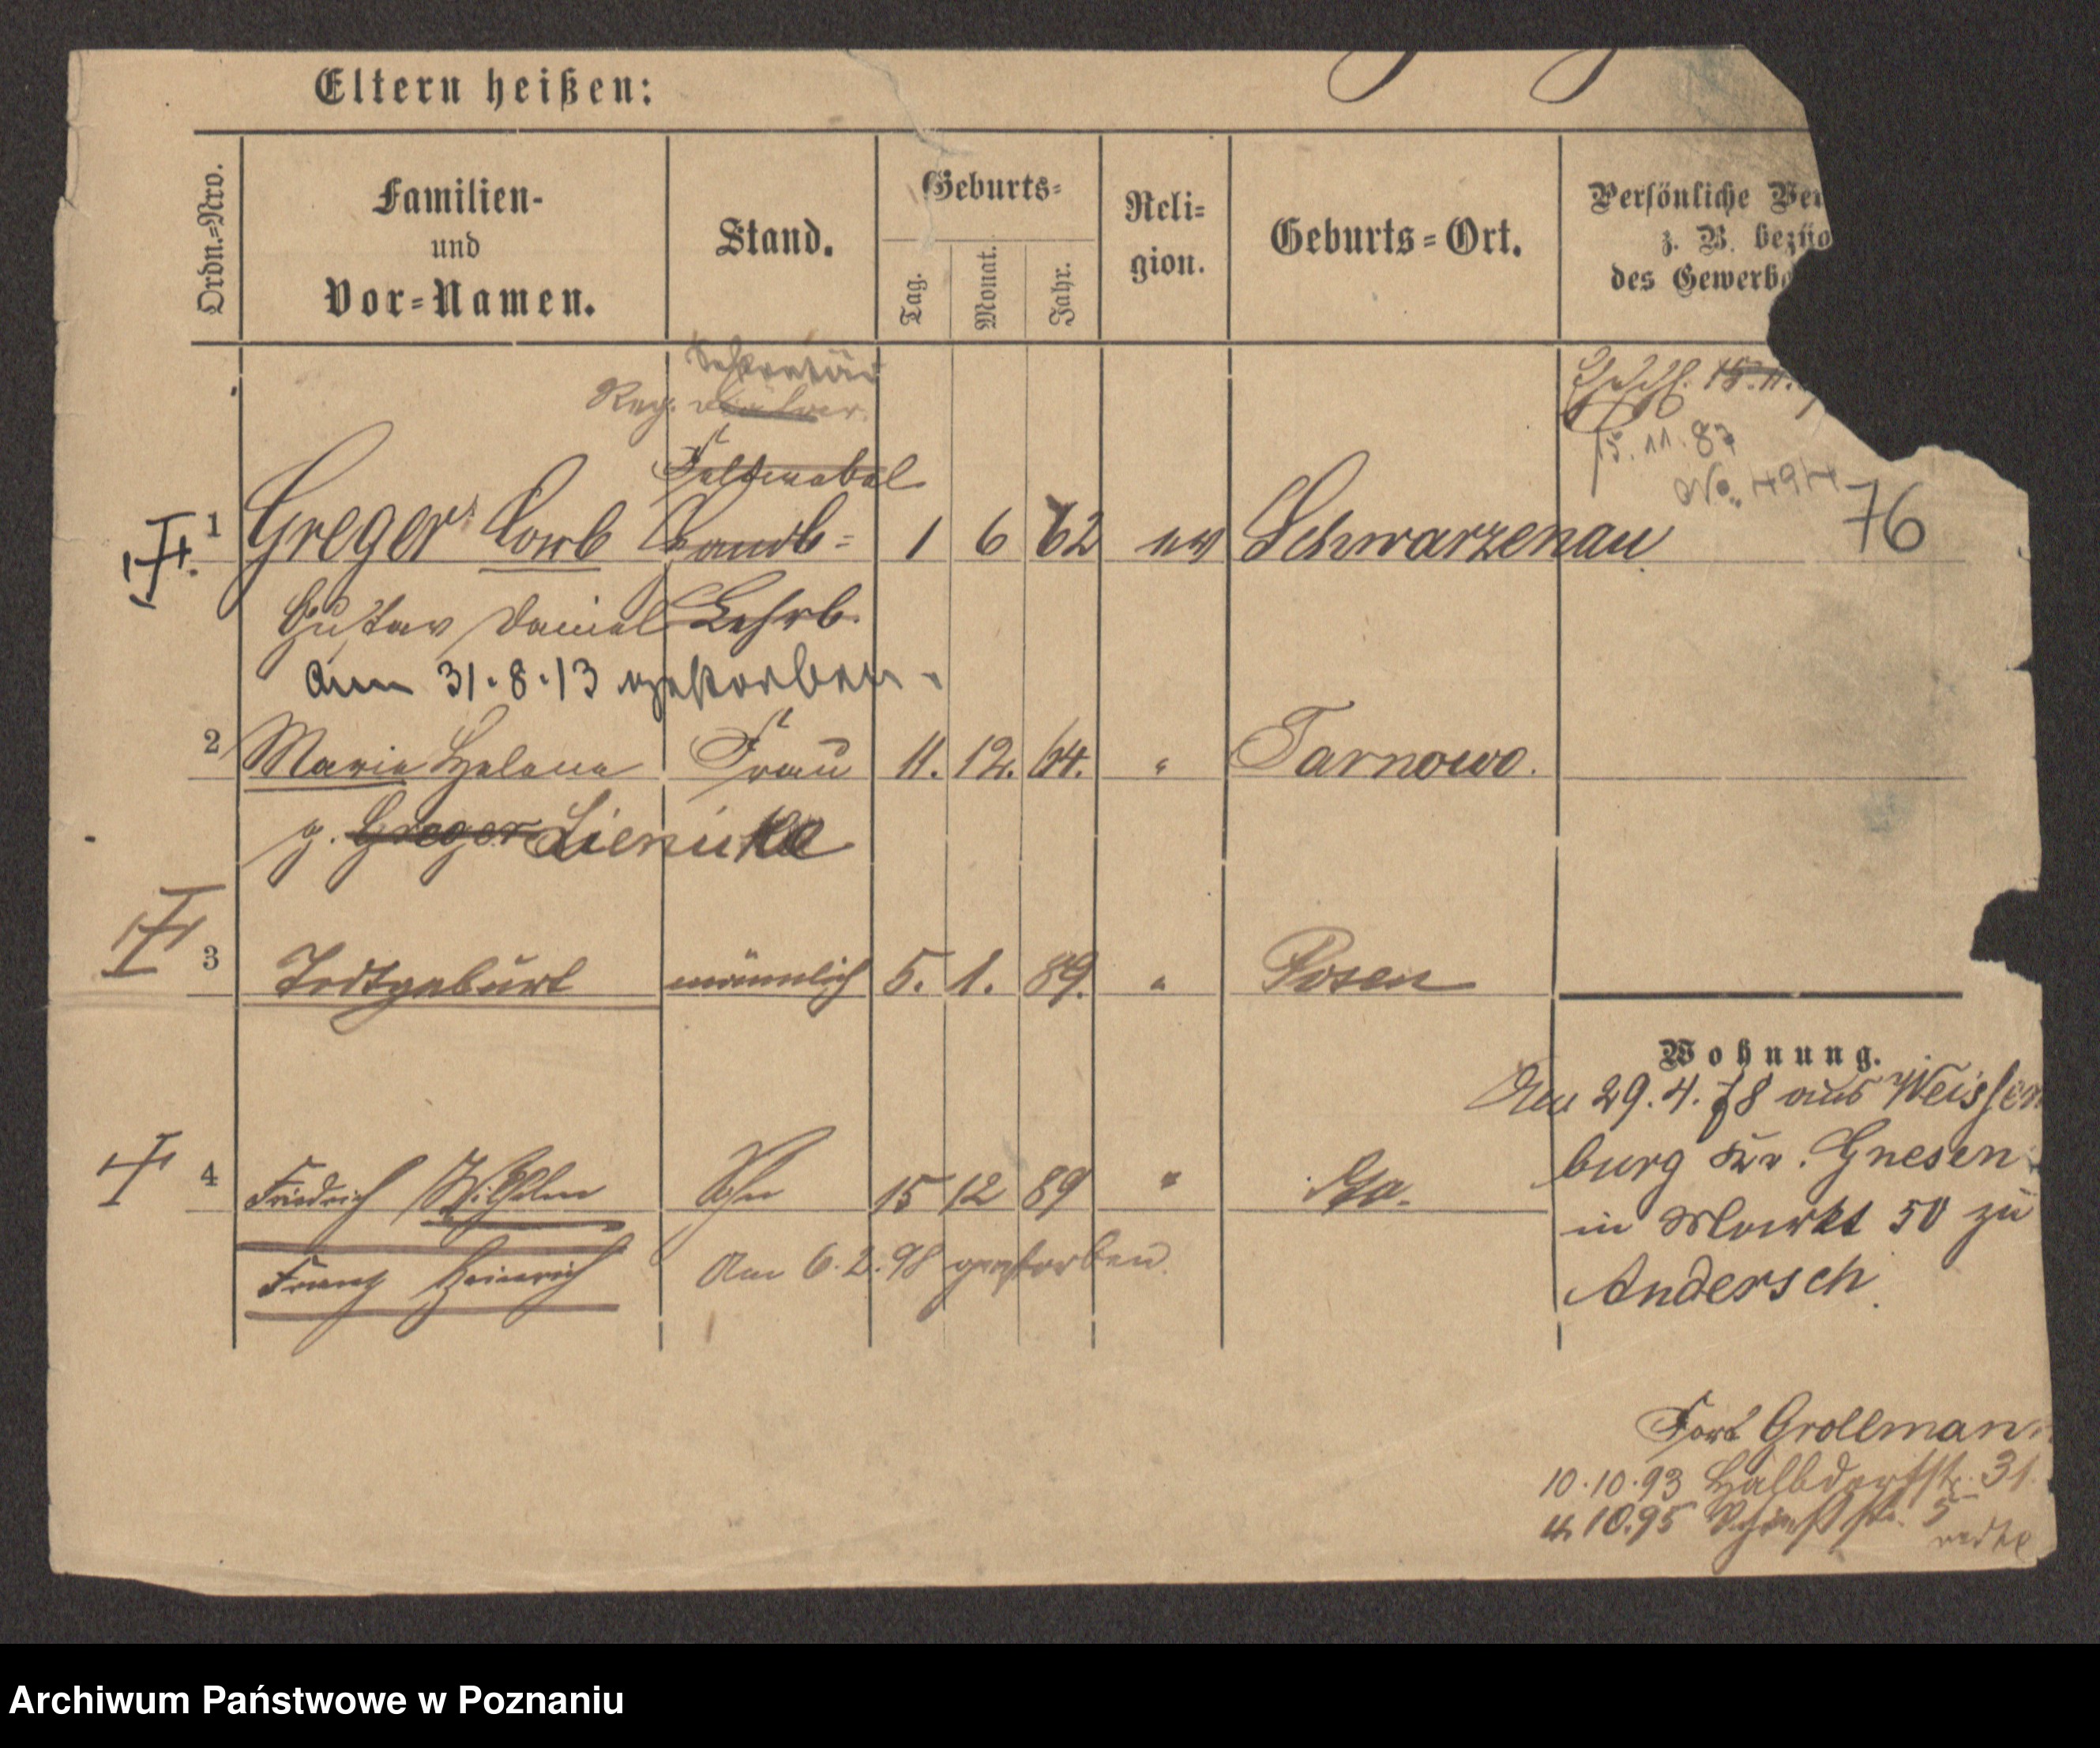 Eltern heißen:
Ordn.=Nro.
Familien-
und
Vor=Namen.
Stand.
Geburts=
Tag.
Monat.
Jahr.
Reli=
gion.
Geburts=Ort.
Persönliche Ver
z. B. bezüg
des Gewerb
Sekretär
Reg.
15.11.
Feldwebel
15.11.87
No. 494
76
1 Greger 1 6 62 ev Schwarzenau
Gustav Daniel Lehrb.
Am 31.8.13 gestorben.
2 Marie Helene Frau 11. 12. 64. " Tarnowo.
g. Greger Lienicke
3 Todtgeburt männlich 5. 1. 89. " Posen
Wohnung.
Am 29.4. 8 aus Weissen
burg Kr. Gnesen
4 Friedrich Wilhelm Sohn 15 12 89 "
in Markt 50 zu
Franz Heinrich Am 6.2.98 gestorben.
Andersch
Fort Grollman
10.10.93 Halbdorfstr. 31.
4.10.95 5
Archiwum Państwowe w Poznaniu